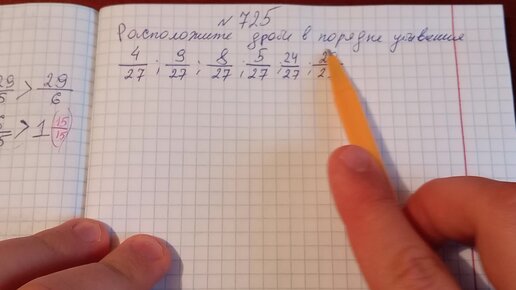 № 725
Расположите дроби в порядке убывания
4/27 ; 9/27 ; 8/27 ; 5/27 ; 24/27 ;
29/5 > 29/6
> 1 (15/15)